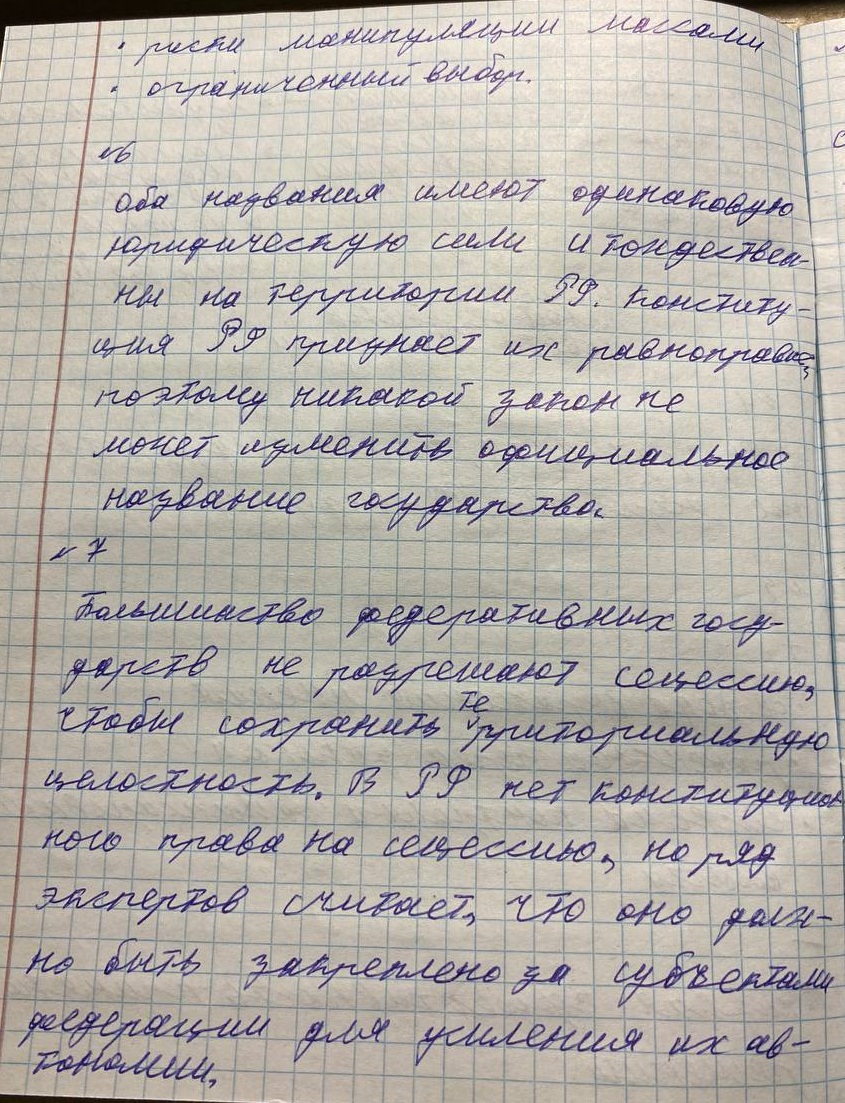 · риски манипуляции массами
· ограниченный выбор.
№6
Оба названия имеют одинаковую
юридическую силу и тождествен-
ны на территории РФ. Конститу-
ция РФ признает их равноправие,
поэтому никакой закон не
может изменить официальное
название государства.
№7
Большинство федеративных госу-
дарств не разрешают сецессию,
чтобы сохранить территориальную
целостность. В РФ нет конституцион
ного права на сецессию, но ряд
экспертов считает, что оно долж-
но быть закреплено за субъектами
федерации для усиления их ав-
тономии.